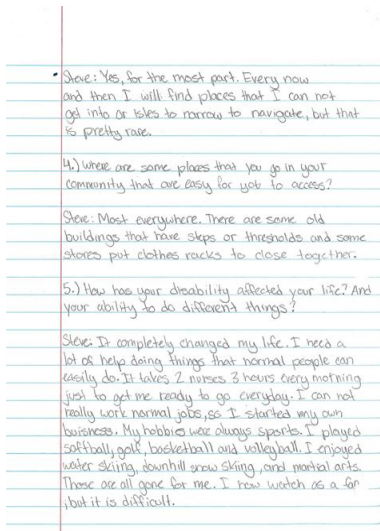 • Steve: Yes, for the most part. Every now
and then I will find places that I can not
get into or isles to narrow to navigate, but that
is pretty rare.
4.) where are some places that you go in your
community that are easy for you to access?
Steve: Most everywhere. There are some old
buildings that have steps or thresholds and some
stores put clothes racks to close together.
5.) How has your disability affected your life? And
your ability to do different things?
Steve: It completely changed my life. I need a
lot of help doing things that normal people can
easily do. It takes 2 nurses 3 hours every morning
just to get me ready to go everyday. I can not
really work normal jobs, so I started my own
buisness. My hobbies were always sports. I played
softball, golf, basketball and volleyball. I enjoyed
water skiing, downhill snow skiing, and martial arts.
Those are all gone for me. I now watch as a fan
, but it is difficult.